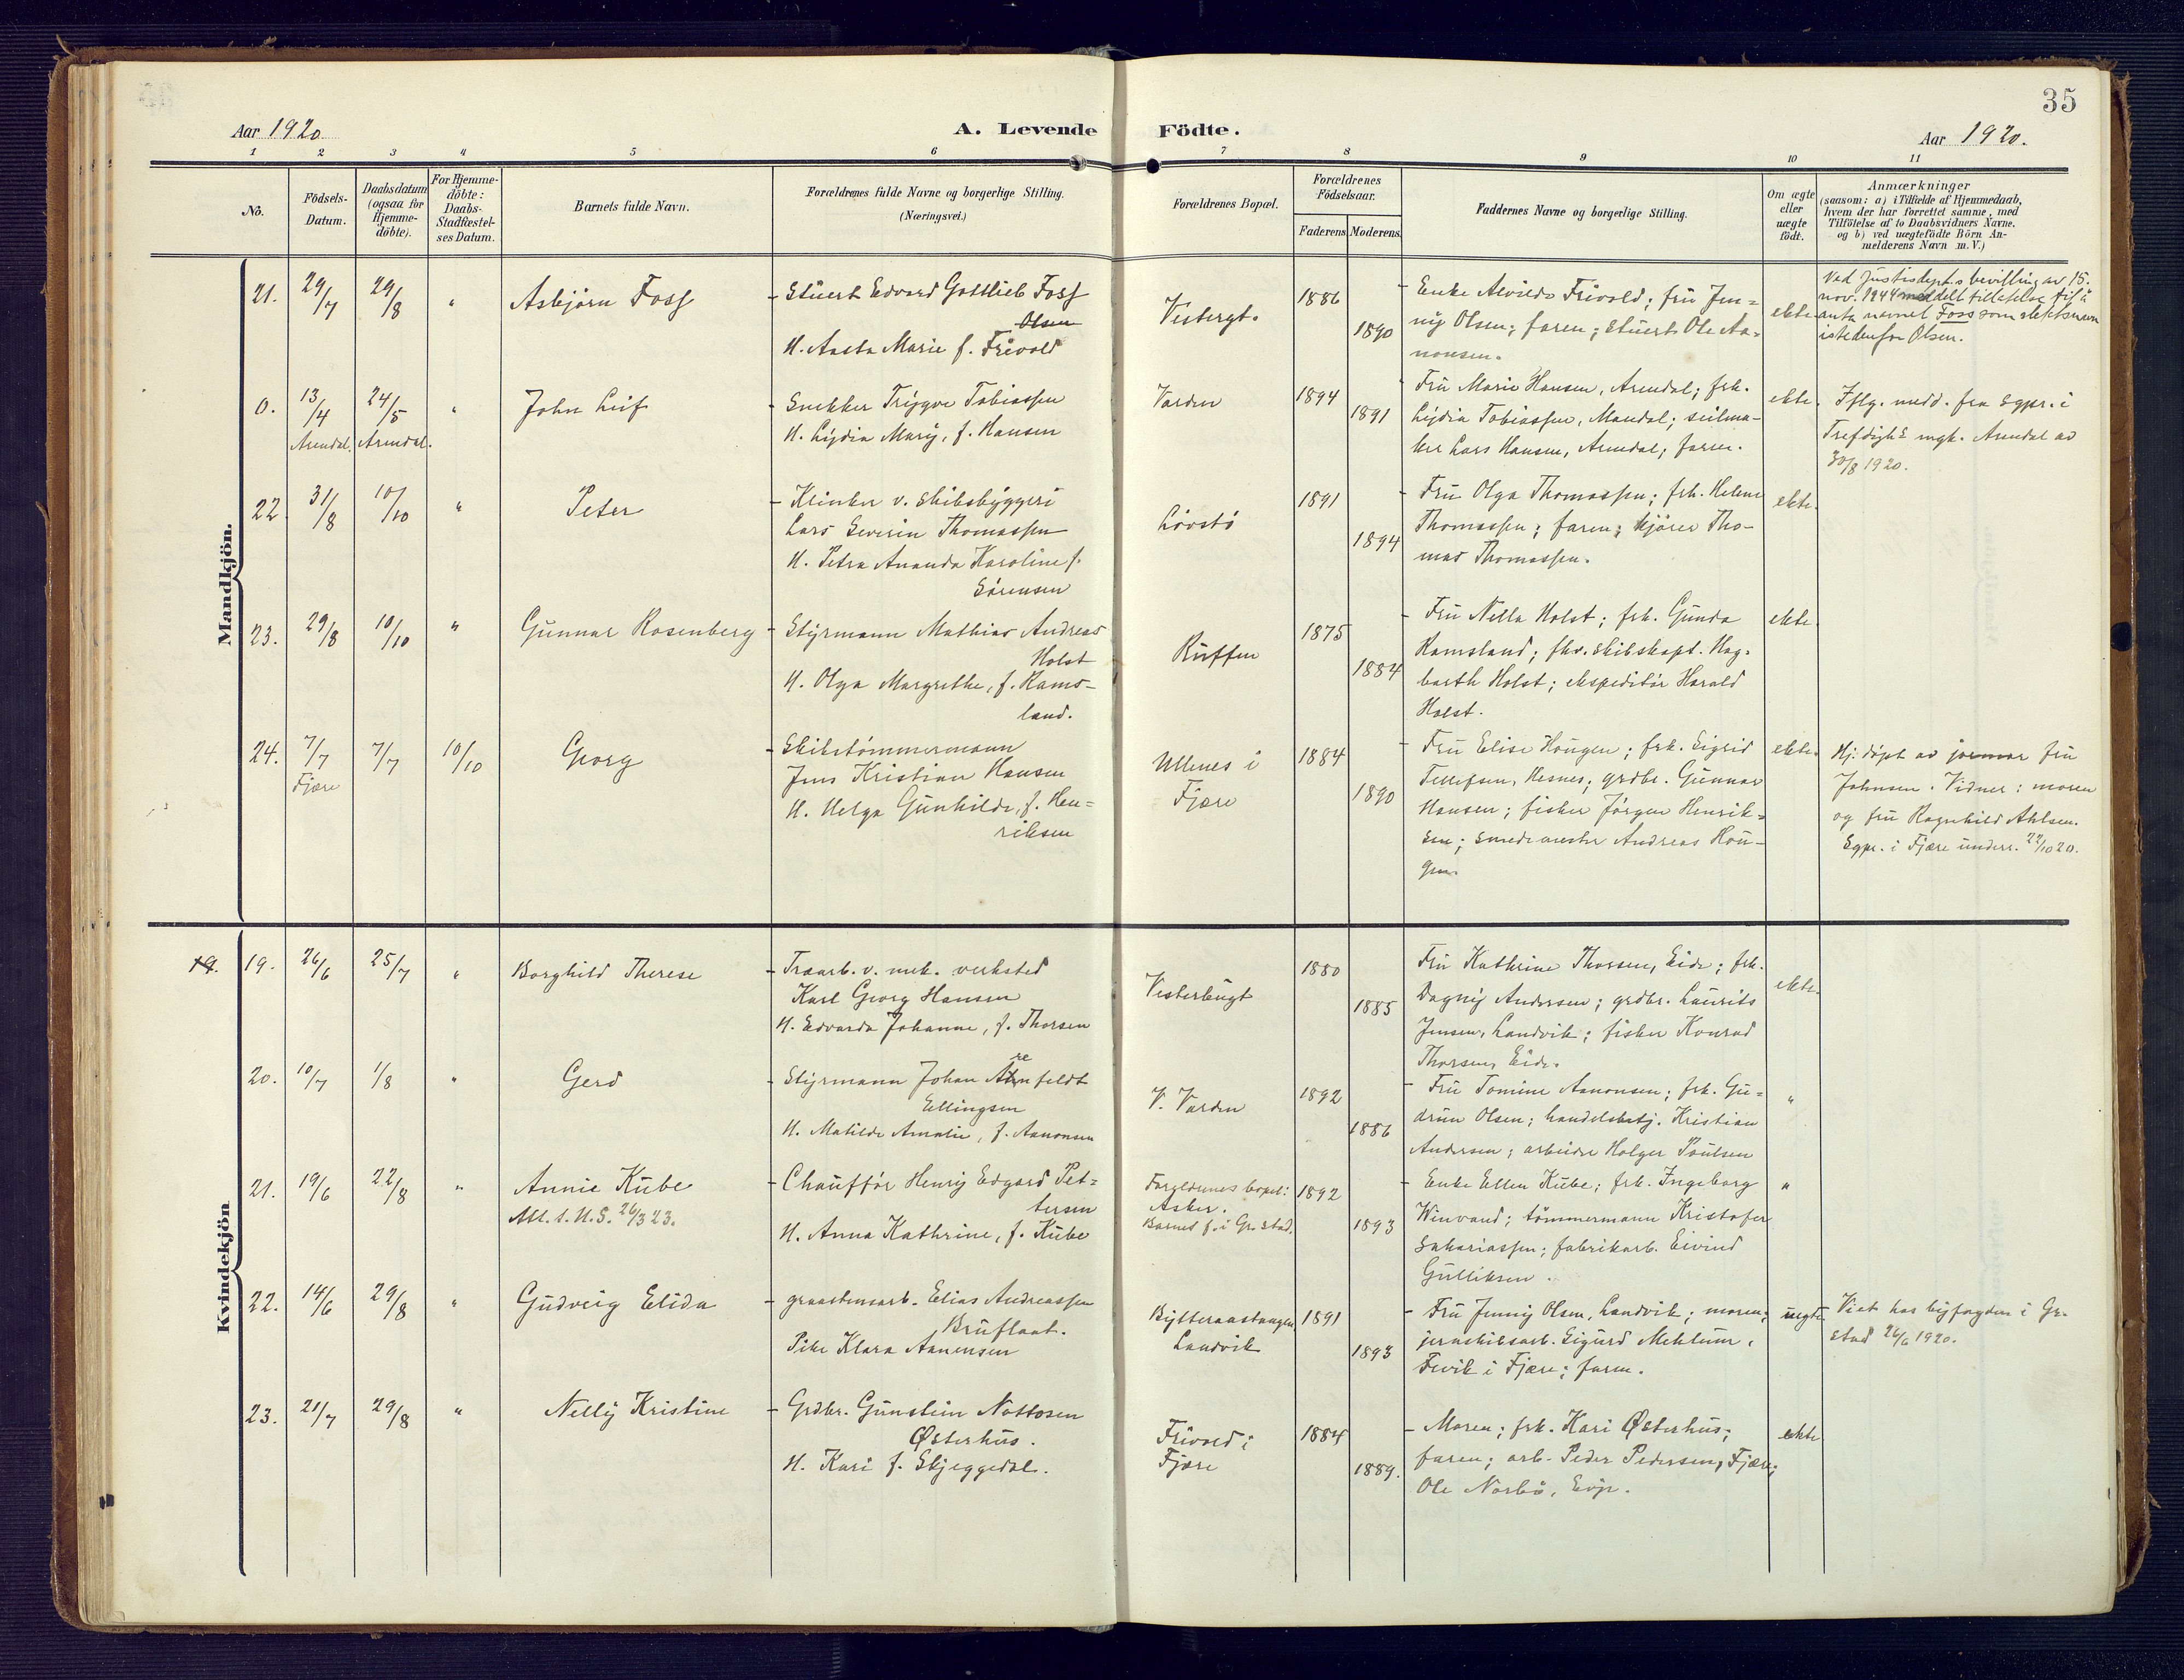 35
Aar 1920.
A. Levende Födte.
Aar 1920.
1 2 3 4 5 6 7 8 9 10 11
No.
Födsels-Datum.
Daabsdatum (ogsaa for Hjemme-döbte).
For Hjemme-döbte: Daabs-Stadfæstel-ses Datum.
Barnets fulde Navn.
Forældrenes fulde Navne og borgerlige Stilling.
(Næringsvei.)
Forældrenes Bopæl.
Forældrenes Födselsaar.
Faderens. Moderens.
Faddernes Navne og borgerlige Stilling.
Om ægte eller uægte födt.
Anmærkninger
(saasom: a) i Tilfælde af Hjemmedaab,
hvem der har forrettet samme, med
Tilföielse af to Daabsvidners Navne.
og b) ved uægtefödte Börn An-
melderens Navn m. V.)
Mandkjön.
21. 29/7 29/8 " Asbjørn Foss
- Stuert Edvard Gottlieb Foss
Olsen
H. Aasta Marie f. Frivold
Vestergt.
1886
1890
- Enke Alvilde Frivold; fru Jen-
ny Olsen; faren; stuert Ole Aa-
nonsen.
ekte
Ved Justisdept.s bevilling av 15.
nov. 1944 meddelt tillatelse til å
anta navnet Foss som slektsnavn
istedenfor Olsen.
0. 13/4 24/5 " John Leif
Arendal. Arendal.
- Snekker Trygve Tobiassen
H. Lydia Mary, f. Hansen
Varden
1894
1891
- Fru Marie Hansen, Arendal; frk.
Lydia Tobiassen, Mandal; seilma-
ker Lars Hansen, Arendal; faren.
ekte.
Iflg. medd. fra sgpr. i
Trefoldighs mgh. Arendal av
30/8 1920.
22 31/8 10/10 " Peter
- Klinker v. skibsbyggeri
Lars Severin Thomassen
H. Petra Ananda Karoline f.
Sørensen
Løvstø
1891
1894
- Fru Olga Thomassen; frk. Helene
Thomassen; faren; kjører Tho-
mas Thomassen.
ekte.
23. 29/8 10/10 " Gunnar Rosenberg
- Styrmann Mathias Andreas
Holst
H. Olga Margrethe, f. Rams-
land.
Ruffen
1875
1884
- Fru Nella Holst; frk. Gunda
Ramsland; fhv. skibskapt. Hag-
barth Holst; ekspeditør Harald
Holst.
ekte.
24. 7/7 7/7 10/10 Georg
Fjære
- Skibstømmermann
Jens Kristian Hansen
H. Helga Gunhilde, f. Hen-
riksen
Ullenes i
Fjære
1884
1890
- Fru Elise Hougen; frk. Sigrid
Tellefsen, Hesnes; grdbr. Gunnar
Hansen; fisker Jørgen Henrik-
sen; smedmester Andreas Hou-
gen.
ekte.
Hj: døpt av jormor fru
Johnsen. Vidner: moren
og fru Ragnhild Ahlsen.
Sgpr. i Fjære underr. 22/10 20.
Kvindekjön
19. 19. 26/6 25/7 " Borghild Therese
- Træarb. v. mek. verksted
Karl Georg Hansen
H. Edvarda Johanne, f. Thorsen
Vesterbugt
1880
1885
Fru Kathrine Thorsen, Eide; frk.
Dagny Andersen; grdbr. Laurits
Jensen, Landvik; fisker Konrad
Thorsen, Eide.
ekte.
20. 10/7 1/8 " Gerd
- Styrmann Johan Ahrenfeldt
Ellingsen
H. Matilde Amalie, f. Aanonsen
V. Varden
1892
1886
- Fru Tomine Aanonsen; frk. Gu-
drun Olsen; handelsbetj. Kristian
Andersen; arbeider Holger Poulsen
"
21. 19/6 22/8 " Annie Kube
Att. s. U.S. 26/3 23.
- Chauffør Henry Edgard Pet-
tersen
H. Anna Kathrine, f. Kube
Forældrenes bopæl:
Asker.
Barnet f. i Gr.stad.
1892
1893
- Enke Ellen Kube; frk. Ingeborg
Winvand; tømmermann Kristofer
Sakariassen; fabrikarb. Eivind
Gulliksen.
"
22. 14/6 29/8 " Gudveig Elida
- graastensarb. Elias Andreassen
Bruflaat.
Pike Klara Aanensen
Landvik
1891
1893
- Fru Jenny Olsen, Landvik; moren;
jernskibsarb. Sigurd Mehlum,
Fevik i Fjære; faren.
uegte.
Vist hos byfogden i Gr.
stad 26/6 1920.
23. 21/7 29/8 " Nelly Kristine
- Grdbr. Gunstein Nottosen
Østerhus.
H. Kari f. Skjeggedal.
Frivold i
Fjære
1884
1889.
- Moren; frk. Kari Østerhus;
faren; arb. Peder Pedersen, Fjære;
Ole Norbø, Evje.
ekte